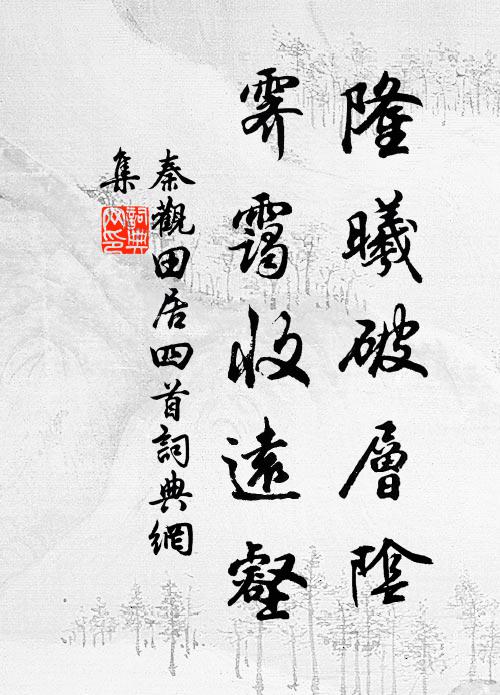 隆曦破層陰
霽靄收遠壑
秦觀田居四首詞典網
集
詞典網印